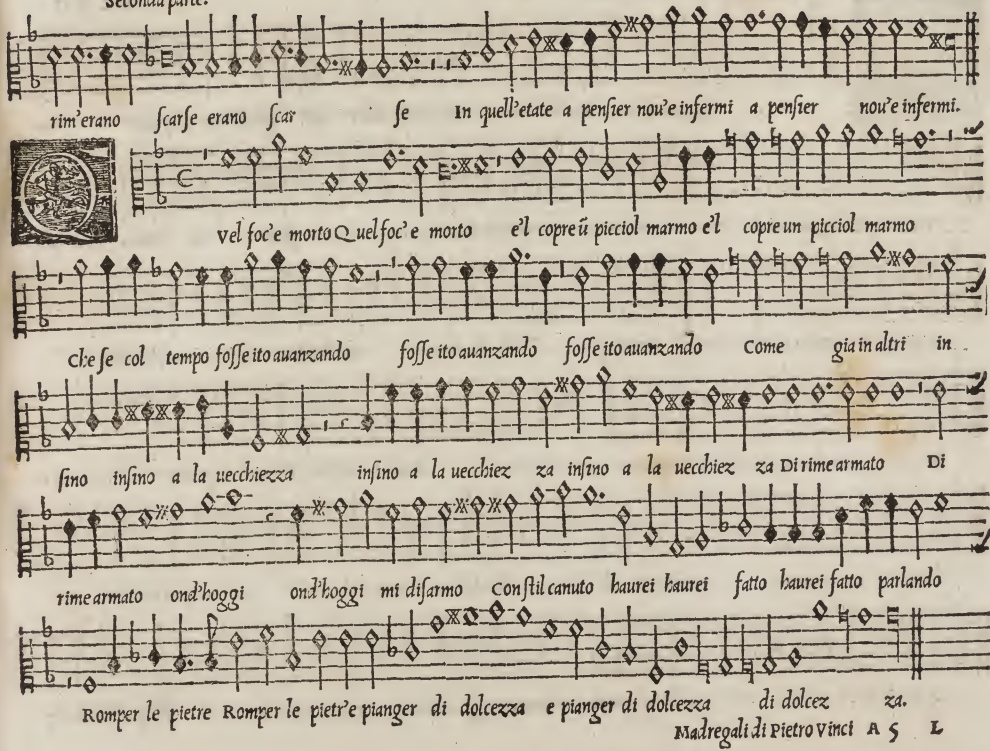 Seconda parte.
rim'erano scarse erano scar se In quell'etate a pensier nou'e infermi a pensier nou'e infermi.
Qvel foc'e morto Quel foc'e morto e'l copre ũ picciol marmo e'l copre un picciol marmo
Che se col tempo fosse ito auanzando fosse ito auanzando fosse ito auanzando Come gia in altri in
sino insino a la uecchiezza insino a la uecchiez za insino a la uecchiez za Di rime armato Di
rime armato ond'hoggi ond'hoggi mi disarmo Con stil canuto haurei haurei fatto haurei fatto parlando
Romper le pietre Romper le pietr'e pianger di dolcezza e pianger di dolcezza di dolcez za.
Madregali di Pietro Vinci A 5 L